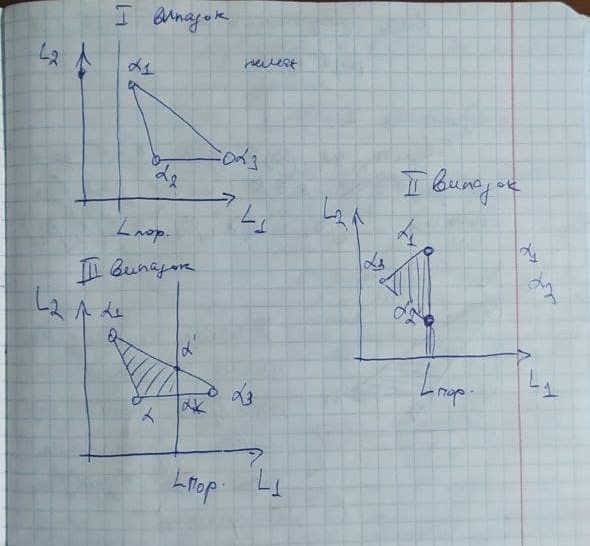 I випадок
L2
α1
немає
α2
α3
Lпор.
L1
II випадок
L2
α1
α3
α2
Lпор.
L1
α1
α2
III випадок
L2
α1
α'
α
αk
α3
Lпор.
L1